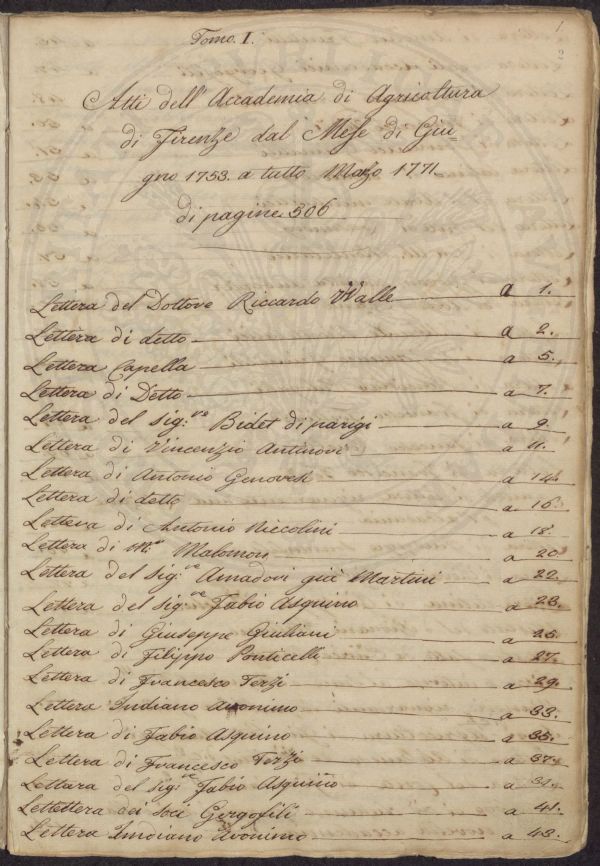 1
2
Tomo. I.
Atti dell' Accademia di Agricoltura
di Firenze dal Mese di Giu=
gno 1753. a tutto Marzo 1771.
di pagine 506
Lettera del Dottore Riccardo Walle a 1.
Lettera di detto a 2.
Lettera Capella a 5.
Lettera di Detto a 7.
Lettera del sig:re Bidet di parigi a 9.
Lettera di Vincenzio Antinori a 11.
Lettera di Antonio Genovesi a 14.
Lettera di detto a 16.
Lettera di Antonio Niccolini a 18.
Lettera di M:r a 20
Lettera del sig:re Amadori già Martini a 22.
Lettera del sig:re Fabio Asquino a 23.
Lettera di Giuseppe Giuliani a 25.
Lettera di Filippo Ponticelli a 27.
Lettera di Francesco Terzi a 29.
Lettera Indiano Anonimo a 33.
Lettera di Fabio Asquino a 35.
Lettera di Francesco Terzi a 37.
Lettara del sig:re Fabio Asquino a
Lettettera dei soci Gergofili a 41.
Lettera Indiano Anonimo a 43.